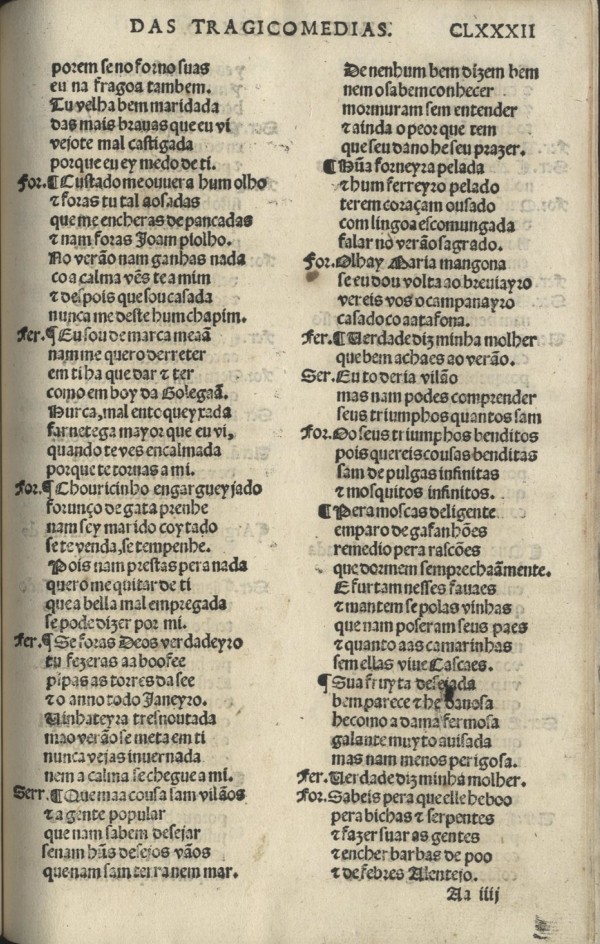 DAS TRAGICOMEDIAS. CLXXXII
porem se no forno suas
eu na fragoa tambem.
Tu velha bem maridada
das mais brauas que eu vi
vejote mal castigada
porque eu ey medo de ti.
For. ¶ Custado me ouuera hum olho
⁊ foras tu tal aosadas
que me encheras de pancadas
⁊ nam foras Joam piolho.
No verão nam ganhas nada
co a calma vẽs te a mim
⁊ despois que sou casada
nunca me deste hum chapim.
Fer. ¶ Eu sou de marca meaã
nam me quero derreter
em ti ha que dar ⁊ ter
como em boy da Golegaã.
Nunca, mal ento queyxada
farnetega mayor que eu vi,
quando te ves encalmada
porque te tornas a mi.
For. ¶ Chouricinho engargueyjado
forunço de gata prenhe
nam sey marido coytado
se te venda, se tempenhe.
Pois nam prestas pera nada
quero me quitar de ti
que a bella mal empregada
se pode dizer por mi.
Fer. ¶ Se foras Deos verdadeyro
tu fezeras aa boofee
pipas as torres da see
⁊ o anno todo Janeyro.
Uinhateyra tresnoutada
mao verão se meta em ti
nunca vejas inuernada
nem a calma se chegue a mi.
Serr. ¶ Que maa cousa sam vilãos
⁊ a gente popular
que nam sabem desejar
senam hũs desejos vãos
que nam sam terra nem mar.
De nenhum bem dizem bem
nem o sabem conhecer
mormuram sem entender
⁊ ainda o peor que tem
que seu dano he seu prazer.
¶ Hũa forneyra pelada
⁊ hum ferreyro pelado
terem coraçam ousado
com lingoa escomungada
falar no verão sagrado.
For. Olhay Maria mangona
se eu dou volta ao breuiayro
vereis vos o campanayro
casado co a atafona.
Fer. ¶ Uerdade diz minha molher
que bem achaes ao verão.
Ser. Eu to deria vilão
mas nam podes comprender
seus triumphos quantos sam
For. Oo seus triumphos benditos
pois quereis cousas benditas
sam de pulgas infinitas
⁊ mosquitos infinitos.
¶ Pera moscas deligente
emparo de gafanhões
remedio pera rascões
que dormem semprechaãmente.
E furtam nesses fauaes
⁊ mantem se polas vinhas
que nam poseram seus paes
⁊ quanto aas camarinhas
sem ellas viue Cascaes.
¶ Sua fruyta desejada
bem parece ⁊ he danosa
he como a dama fermosa
galante muyto auisada
mas nam menos perigosa.
Fer. Uerdade diz minha molher.
For. Sabeis pera que elle he boo
pera bichas ⁊ serpentes
⁊ fazer suar as gentes
⁊ encher barbas de poo
⁊ de febres Alentejo.
Aa iiij